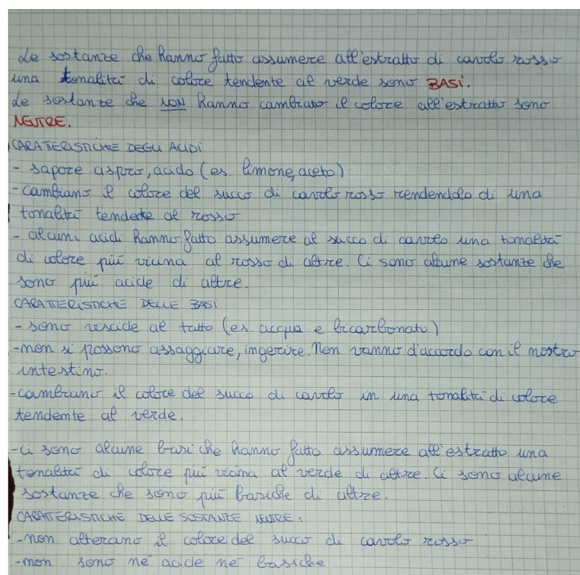 Le sostanze che hanno fatto assumere all'estratto di cavolo rosso
una tonalità di colore tendente al verde sono BASI.
Le sostanze che NON hanno cambiato il colore all'estratto sono
NEUTRE.
CARATTERISTICHE DEGLI ACIDI
- sapore aspro, acido (es limone, aceto)
- cambiano il colore del succo di cavolo rosso rendendolo di una
tonalità tendente al rosso
- alcuni acidi hanno fatto assumere al succo di cavolo una tonalità
di colore più vicina al rosso di altre. Ci sono alcune sostanze che
sono più acide di altre.
CARATTERISTICHE DELLE BASI
- sono viscide al tatto (es. acqua e bicarbonato)
- non si possono assaggiare, ingerire. Non vanno d'accordo con il nostro
intestino.
- cambiano il colore del succo di cavolo in una tonalità di colore
tendente al verde.
- ci sono alcune basi che hanno fatto assumere all'estratto una
tonalità di colore più vicina al verde di altre. Ci sono alcune
sostanze che sono più basiche di altre.
CARATTERISTICHE DELLE SOSTANZE NEUTRE:
- non alterano il colore del succo di cavolo rosso
- non sono nè acide nè basiche